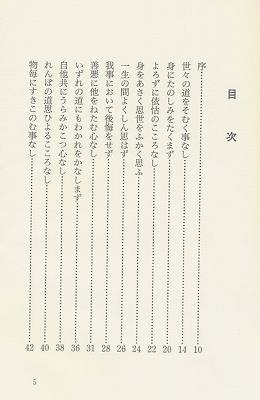 目次
序……………10
世々の道をそむく事なし……………14
身にたのしみをたくまず……………20
よろずに依怙のこころなし……………22
身をあさく思世をふかく思ふ……………24
一生の間よくしん思はず……………26
我事において後悔をせず……………28
善悪に他をねたむ心なし……………31
いずれの道にもわかれをかなしまず……………36
自他共にうらみかこつ心なし……………38
れんぼの道思ひよるこころなし……………40
物毎にすきこのむ事なし……………42
5